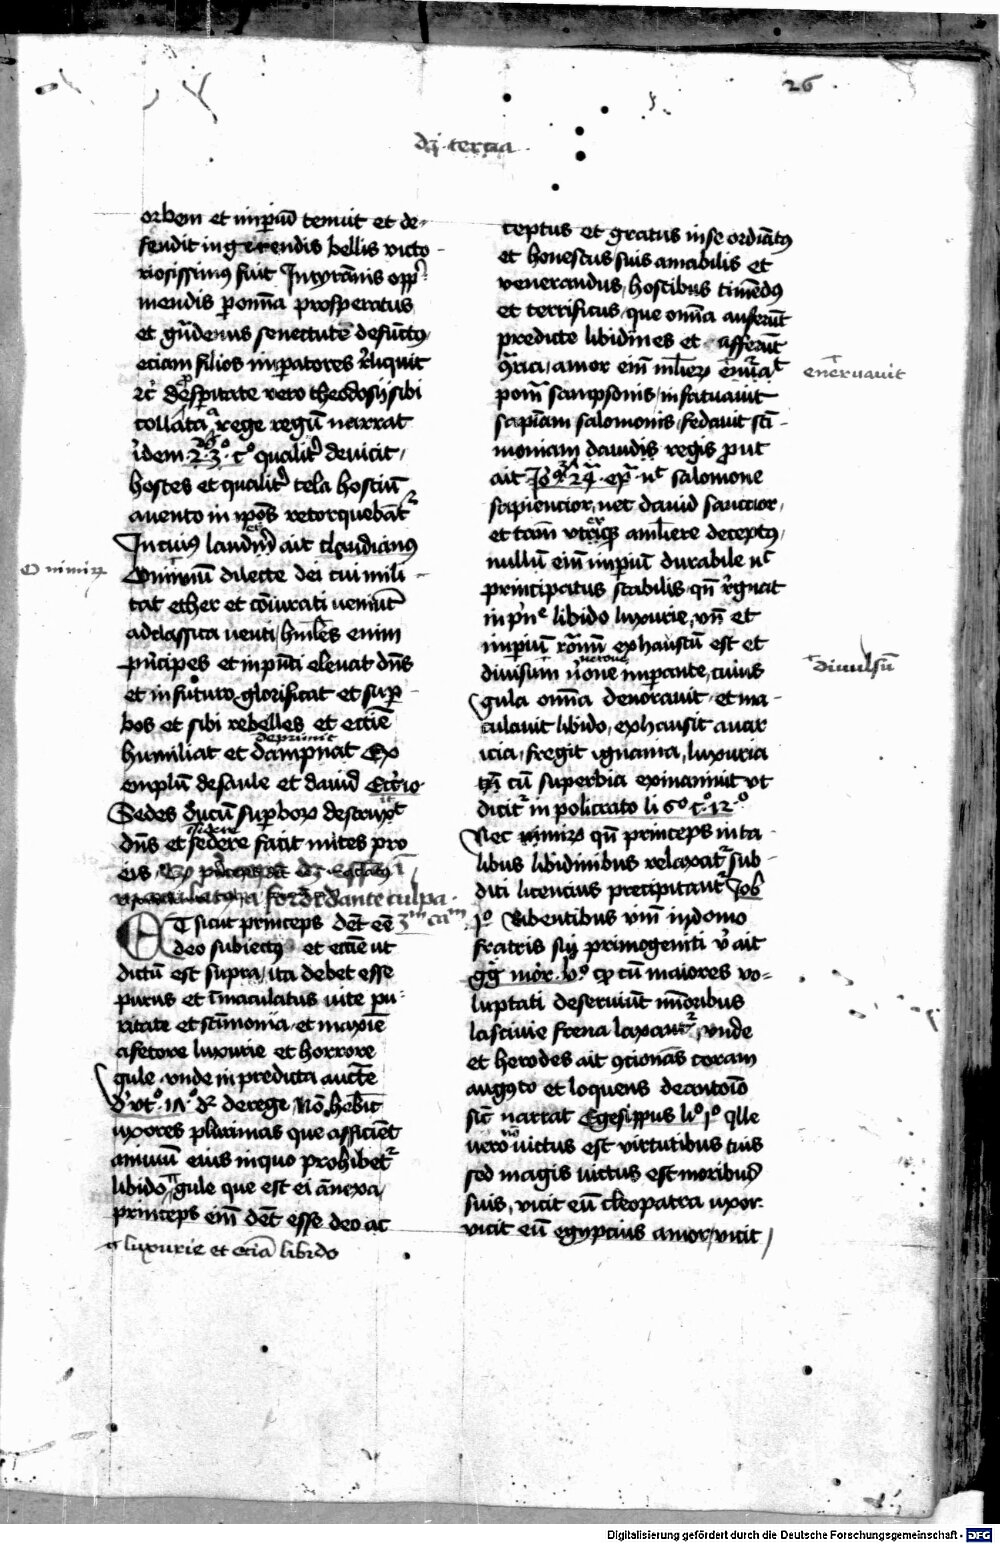 26
di tercia
orbem et imperiu tenuit et de-
fendit in gerendis bellis victo-
riosissimus fuit In tyrannis oppri
mendis per omnia prosperatus
et grandevus senectute defuncto
eciam filios imperatores reliquit
De prosperitate vero theodosij sibi
collata a rege regu narrat
idem 2 3° c° qualiter devicit
hostes et qualiter tela hostiu
a vento in ipsos retorquebantur
In cuius laudem ait claudianus
O nimiu dilecte dei cui mili-
O nimiu
tat ether et coniurati veniut
ad classica venti humiles enim
principes et in presenti elevat dns
et in futuro glorificat et super
bos et sibi rebelles et ecclie
deprimit
humiliat et dampnat Ex
emplu de saule et david Eccli 10
Sedes ducu superborum destruxit
dns et sedere facit mites pro
eis
dante culpa
3m cam
Et sicut princeps debet esse
deo subiectus et ecclie ut
dictu est supra ita debet esse
purus et imaculatus vite pu-
ritate et sctimonia et maxime
a fetore luxurie et horrore
gule unde in predicta aucte
deut° 17° dr de rege No hebit
uxores plurimas que afficient
animu eius in quo prohibetur
libido gule que est ei annexa
princeps eim debet esse deo ac
luxurie et ecia libido
ceptus et gratus in se ordiatus
et honestus suis amabilis et
venerandus hostibus timedus
et terrificus que omnia auferut
predicte libidines et afferut
contraria amor eim mulierum enervat
enervavit
pom sampsonis infatuavit
sapiam salomonis fedavit scti-
moniam davidis regis prout
ait Jo 24 ep nec salomone
sapiencior nec david sanctior
et tam uterque a muliere deceptus
nullu eim imperiu durabile nec
principatus stabilis qn regnat
in principe libido luxurie un et
imperiu romanu exhaustu est et
divisum nerone imperante cuius
divulsu
gula omnia devoravit et ma-
culavit libido exhausit avar
icia fregit ignavia luxuria
tn cu superbia exinanivit ut
dicitur in policrato li 6° c° 12°
Nec nimirum qn princeps in ta-
libus libidinibus relaxatur sub-
diti licencius precipitantur Job
j° Bibentibus vinu in domo
fratris sui primogeniti ut ait
gg mor 2° cp cu maiores vo-
luptati deserviut minoribus
lascivie frena laxantur unde
et herodes ait concionans coram
augusto et loquens de antoio
sict narrat Egesippus li° j° ille
vero non victus est virtutibus tuis
sed magis victus est moribus
suis vicit eu cleopatra uxor
vicit eu egypcius amor vicit
Digitalisierung gefördert durch die Deutsche Forschungsgemeinschaft - DFG